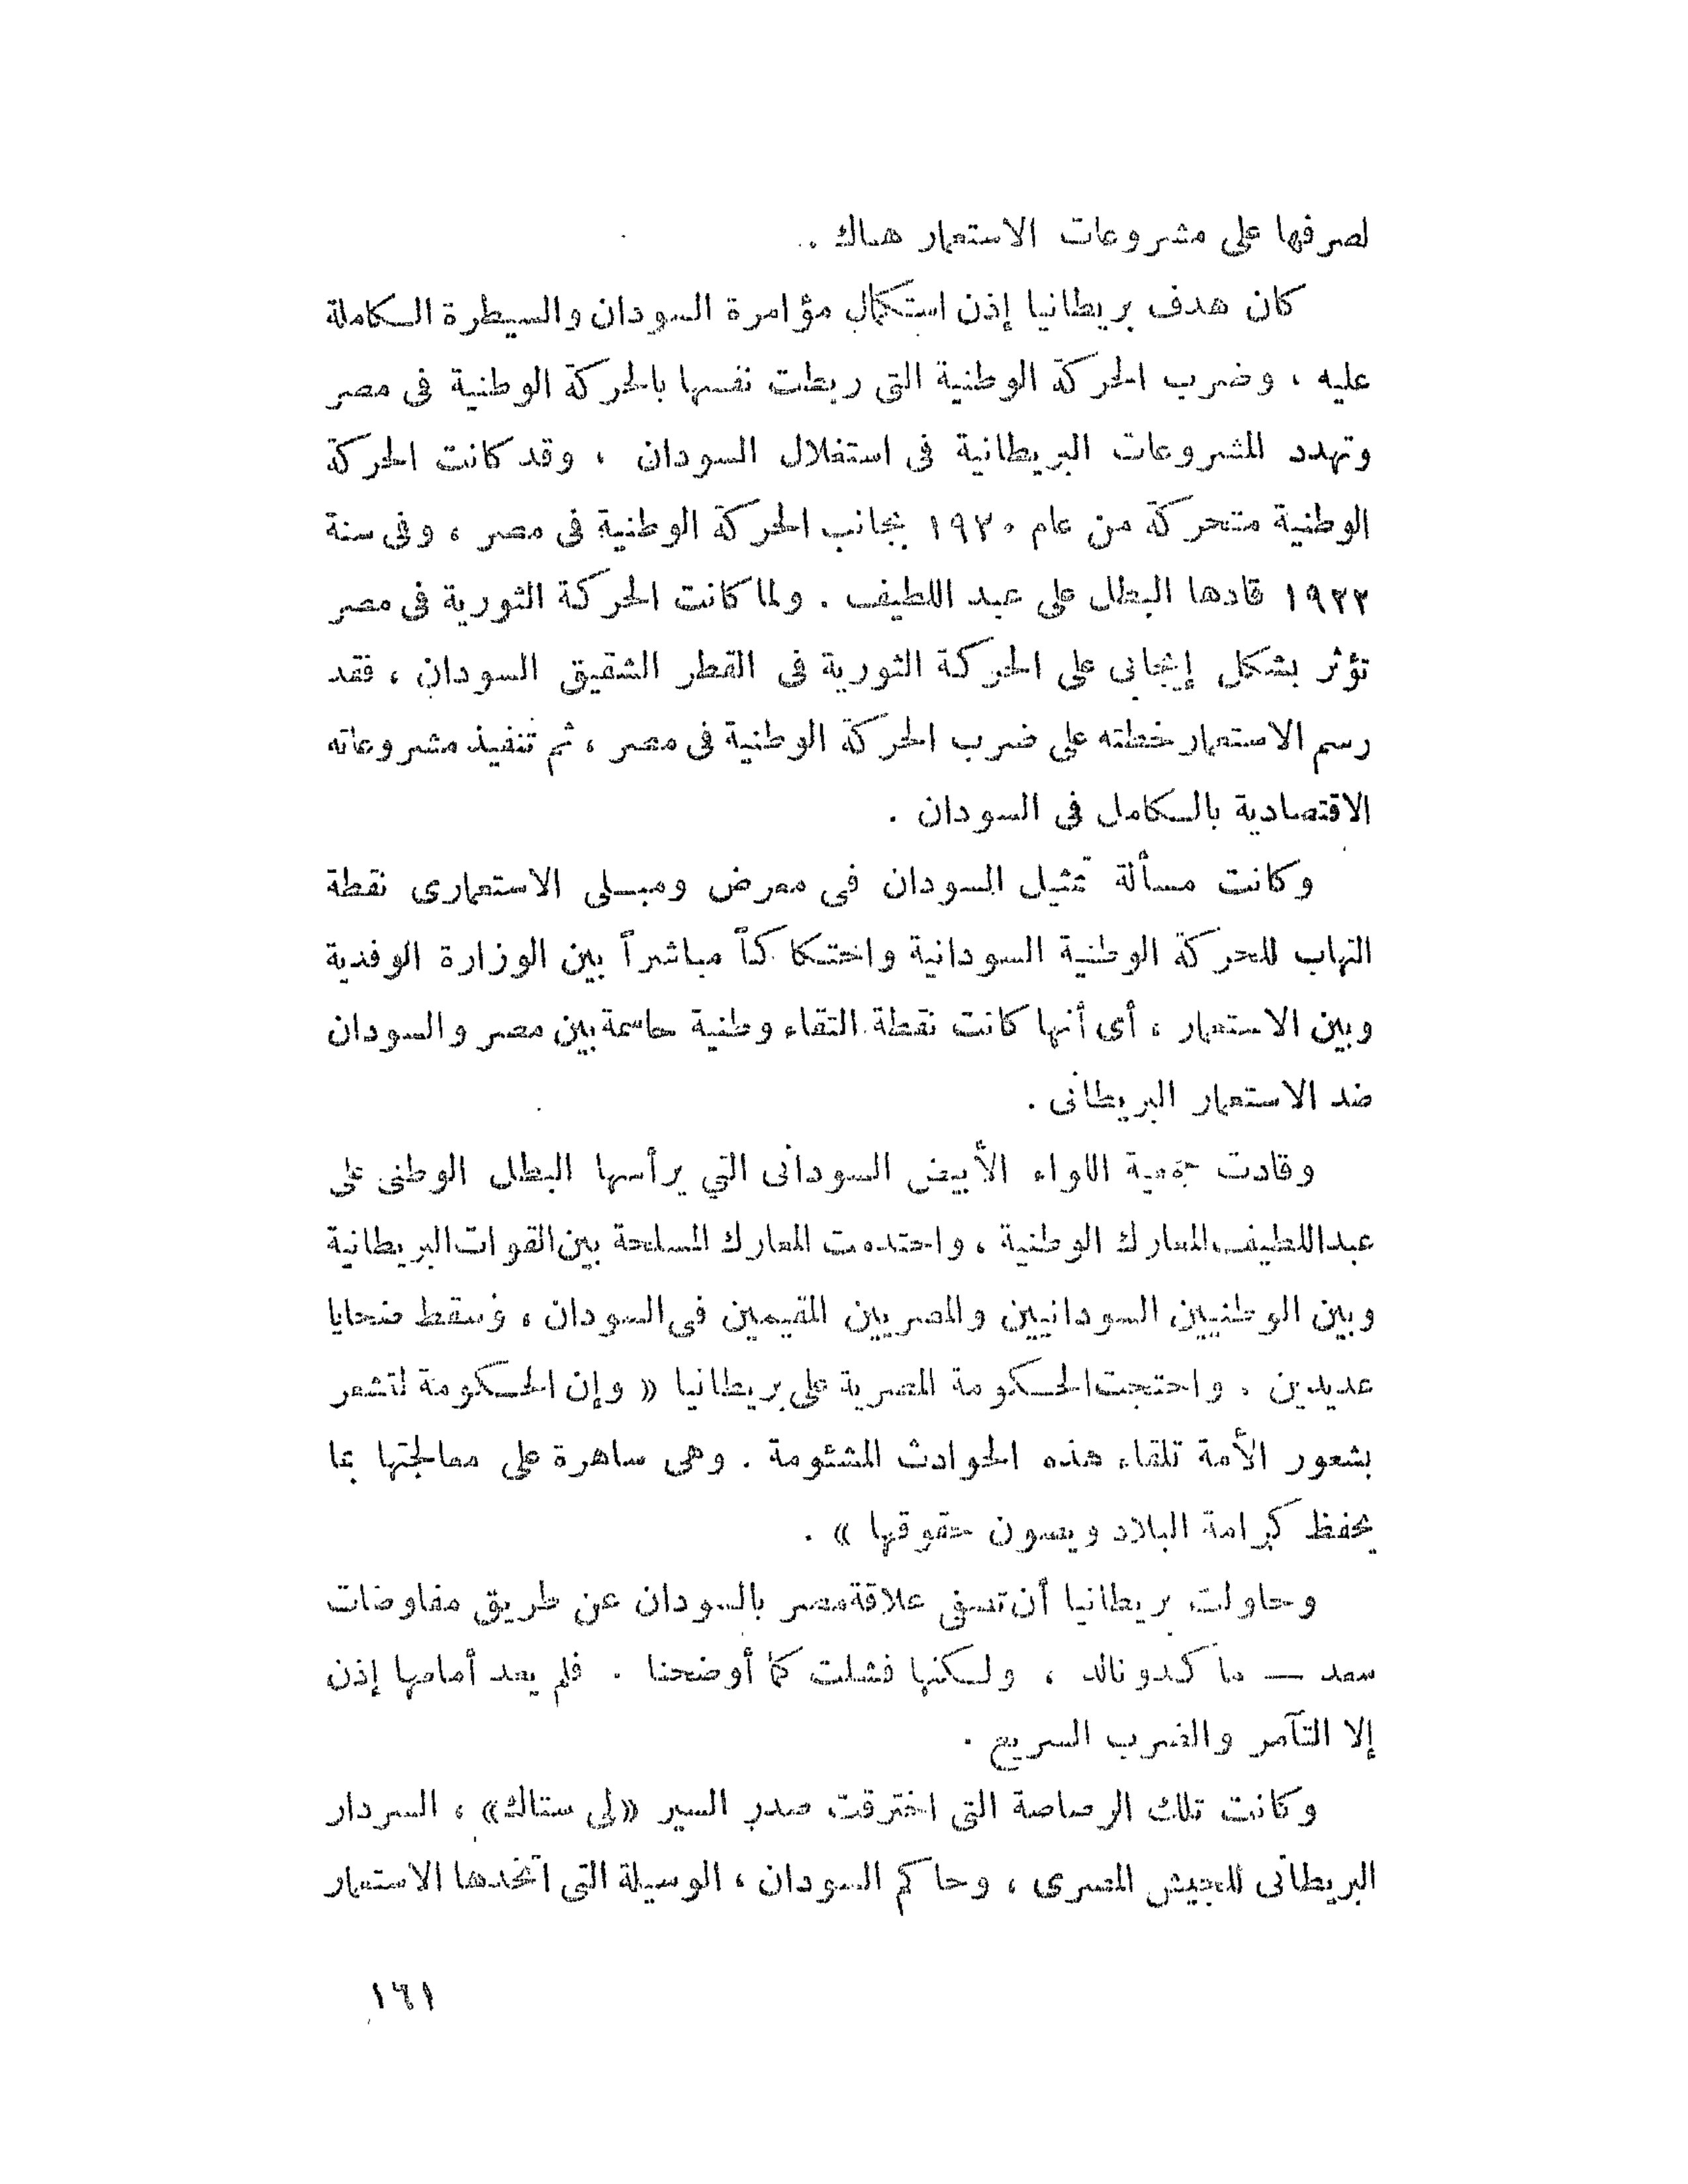 لصرفها على مشروعات الاستعمار هناك .
كان هدف بريطانيا إذن استكمال مؤامرة السودان والسيطرة الكاملة
عليه ، وضرب الحركة الوطنية التى ربطت نفسها بالحركة الوطنية فى مصر
وتهدد المشروعات البريطانية فى استغلال السودان ، وقد كانت الحركة
الوطنية متحركة من عام ١٩٢٠ بجانب الحركة الوطنية فى مصر ، وفى سنة
١٩٢٣ قادها البطل على عبد اللطيف . ولما كانت الحركة الثورية فى مصر
تؤثر بشكل إيجابى على الحركة الثورية فى القطر الشقيق السودان ، فقد
رسم الاستعمار خطته على ضرب الحركة الوطنية فى مصر ، ثم تنفيذ مشروعاته
الاقتصادية بالكامل فى السودان .
وكانت مسألة تمثيل السودان فى معرض ومبلى الاستعمارى نقطة
التهاب للحركة الوطنية السودانية واحتكاكاً مباشراً بين الوزارة الوفدية
وبين الاستعمار ، أى أنها كانت نقطة التقاء وطنية حاسمة بين مصر والسودان
ضد الاستعمار البريطانى .
وقادت جمعية اللواء الأبيض السودانى التي يرأسها البطل الوطنى على
عبد اللطيف المعارك الوطنية ، واحتدمت المعارك المسلحة بين القوات البريطانية
وبين الوطنيين السودانيين والمصريين المقيمين فى السودان ، وسقط ضحايا
عديدين . واحتجت الحكومة المصرية على بريطانيا « وإن الحكومة لتشعر
بشعور الأمة تلقاء هذه الحوادث المشئومة . وهى ساهرة على معالجتها بما
يحفظ كرامة البلاد ويصون حقوقها » .
وحاولت بريطانيا أن تصفى علاقة مصر بالسودان عن طريق مفاوضات
سعد — ماكدونالد ، ولكنها فشلت كما أوضحنا . فلم يعد أمامها إذن
إلا التآمر والضرب السريع .
وكانت تلك الرصاصة التى اخترقت صدر السير «لى ستاك» ، السردار
البريطانى للجيش المصرى ، وحاكم السودان ، الوسيلة التى اتخذها الاستعمار
١٦١